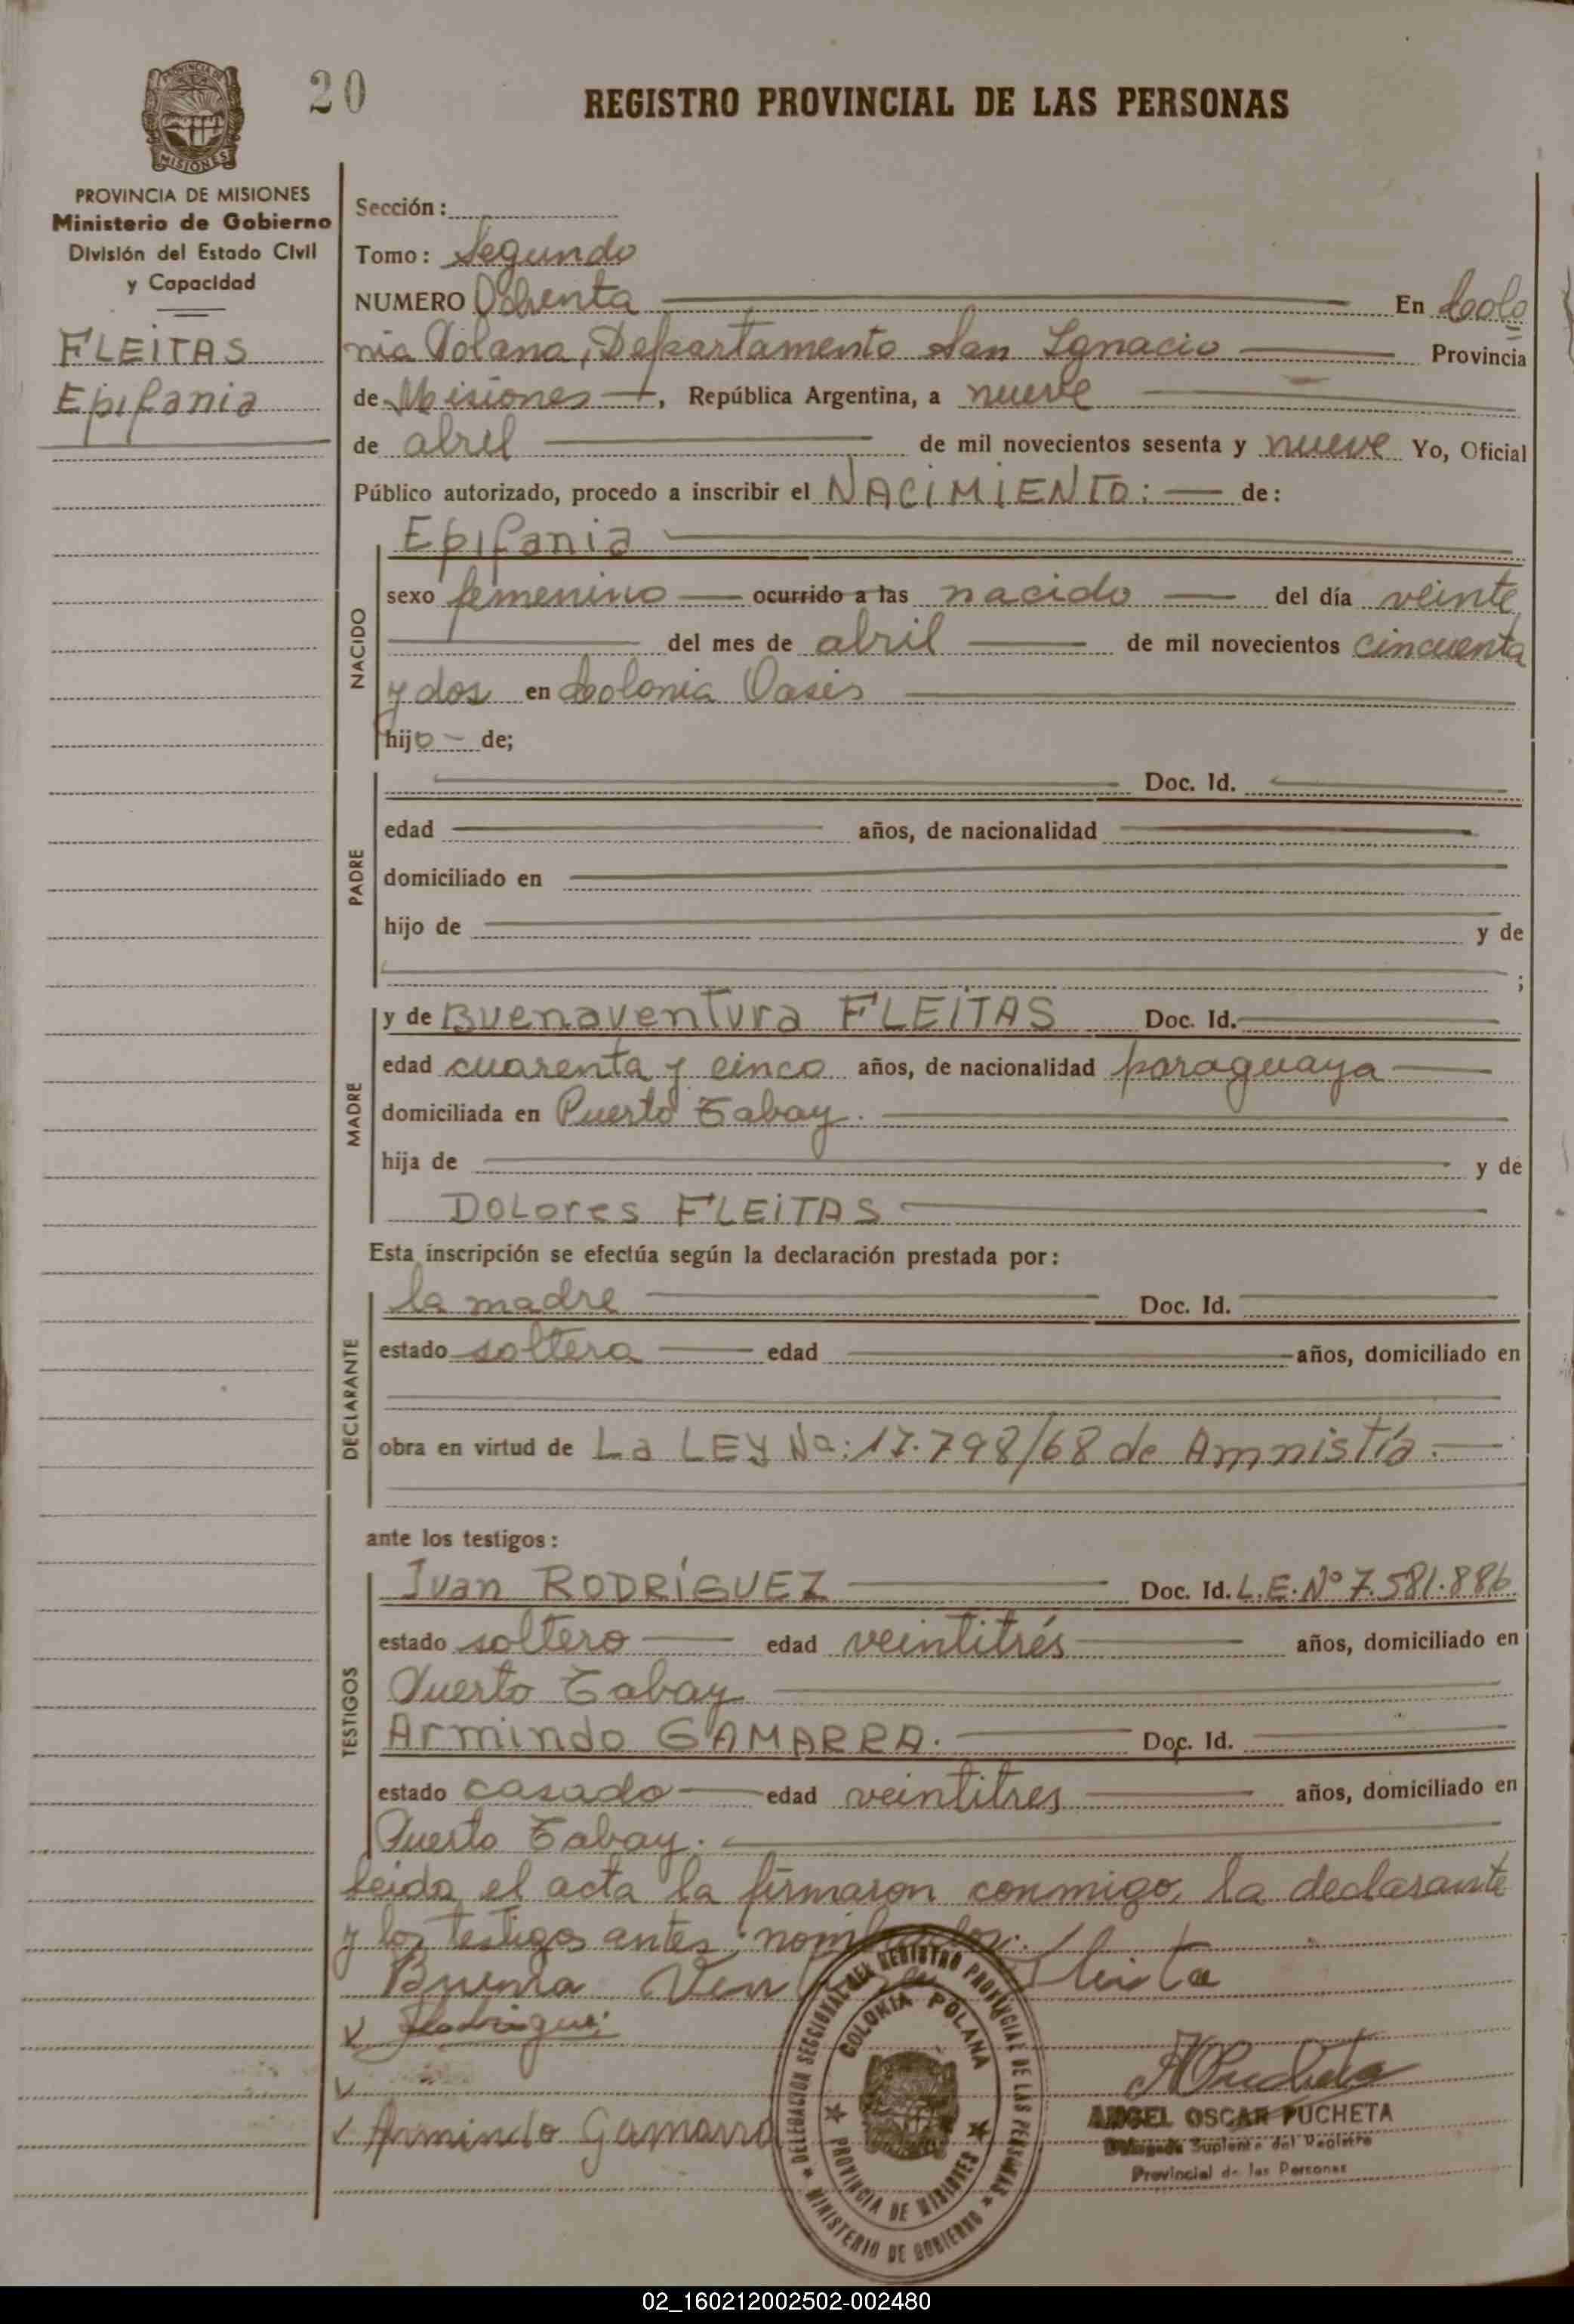 20
REGISTRO PROVINCIAL DE LAS PERSONAS
PROVINCIA DE MISIONES
MISIONES
PROVINCIA DE MISIONES
Ministerio de Gobierno
División del Estado Civil
y Capacidad
FLEITAS
Epifania
Sección:
Tomo: Segundo
NUMERO Ochenta En Colo
nia Polana, Departamento San Ignacio Provincia
de Misiones, República Argentina, a nueve
de abril de mil novecientos sesenta y nueve Yo, Oficial
Público autorizado, procedo a inscribir el NACIMIENTO: de:
Epifania
NACIDO
sexo femenino ocurrido a las nacido del día veinte
del mes de abril de mil novecientos cincuenta
y dos en Colonia Oasis
hijo de;
PADRE
Doc. Id.
edad años, de nacionalidad
domiciliado en
hijo de y de
;
MADRE
y de Buenaventura FLEITAS Doc. Id.
edad cuarenta y cinco años, de nacionalidad paraguaya
domiciliada en Puerto Tabay.
hija de y de
DOLores FLEITAS
Esta inscripción se efectúa según la declaración prestada por:
DECLARANTE
la madre Doc. Id.
estado soltera edad años, domiciliado en
obra en virtud de La LEY No: 17.798/68 de Amnistía.
ante los testigos:
TESTIGOS
Juan RODRÍGUEZ Doc. Id. L.E. Nº 7.581.886
estado soltero edad veintitrés años, domiciliado en
Puerto Tabay
Armindo GAMARRA. Doc. Id.
estado casado edad veintitres años, domiciliado en
Puerto Tabay.
Leida el acta la firmaron conmigo, la declarante
y los testigos antes nombrados:
Buena Ven Fleita
Rodrigue
Armindo Gamarra
DELEGACION SECCIONAL DEL REGISTRO PROVINCIAL DE LAS PERSONAS
MINISTERIO DE GOBIERNO
COLONIA POLANA
PROVINCIA DE MISIONES
APucheta
ANGEL OSCAR PUCHETA
Delegado Suplente del Registro
Provincial de las Personas
02_160212002502-002480